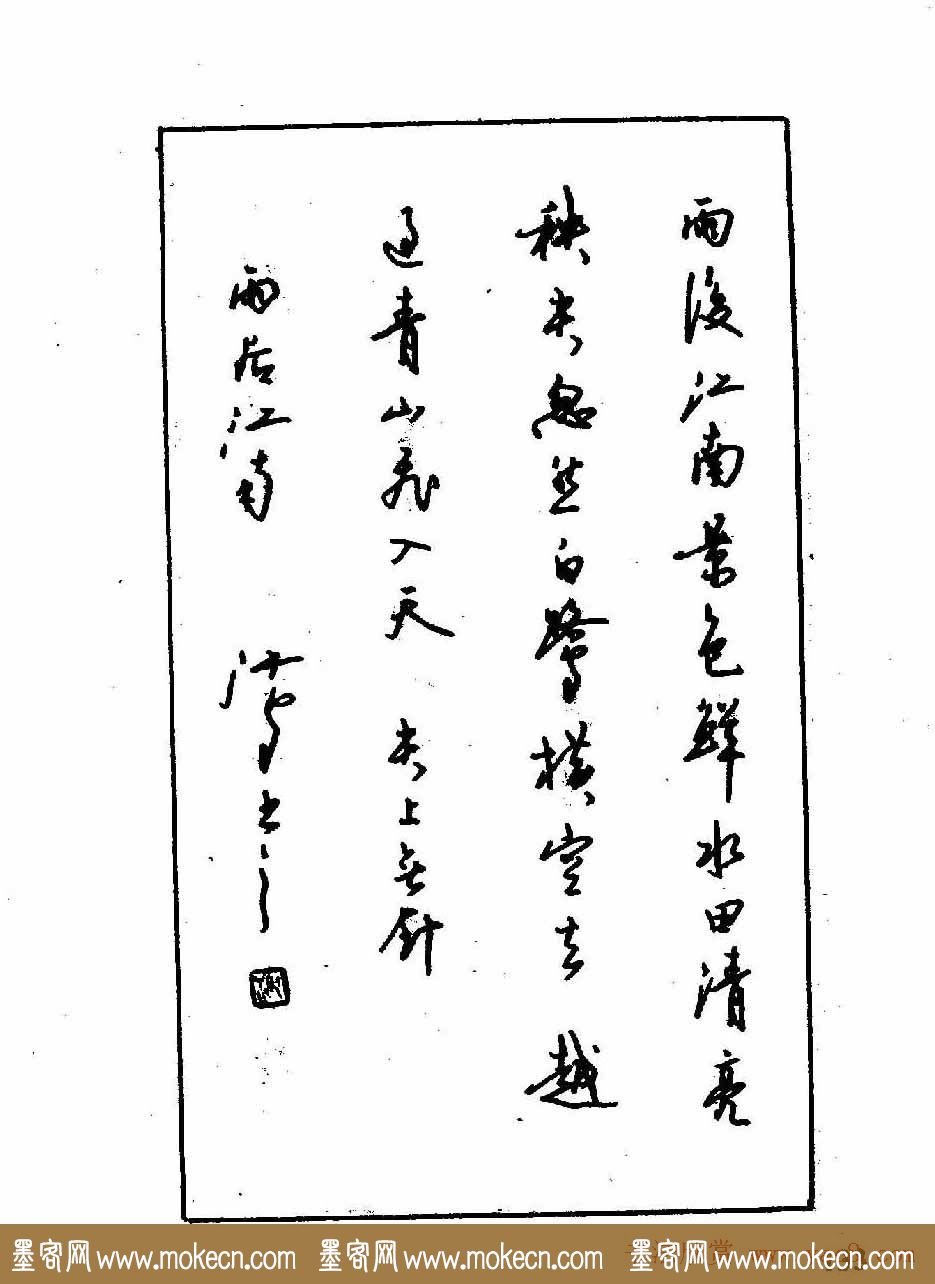 雨後江南景色鮮水田清亮
秧尖忽然白鹭橫空去 越
過青山飛入天 尖上無針
雨后江南 澐书之
墨客网 www.mokecn.com 墨客网 www.mokecn.com 墨客网 www.mokecn.com